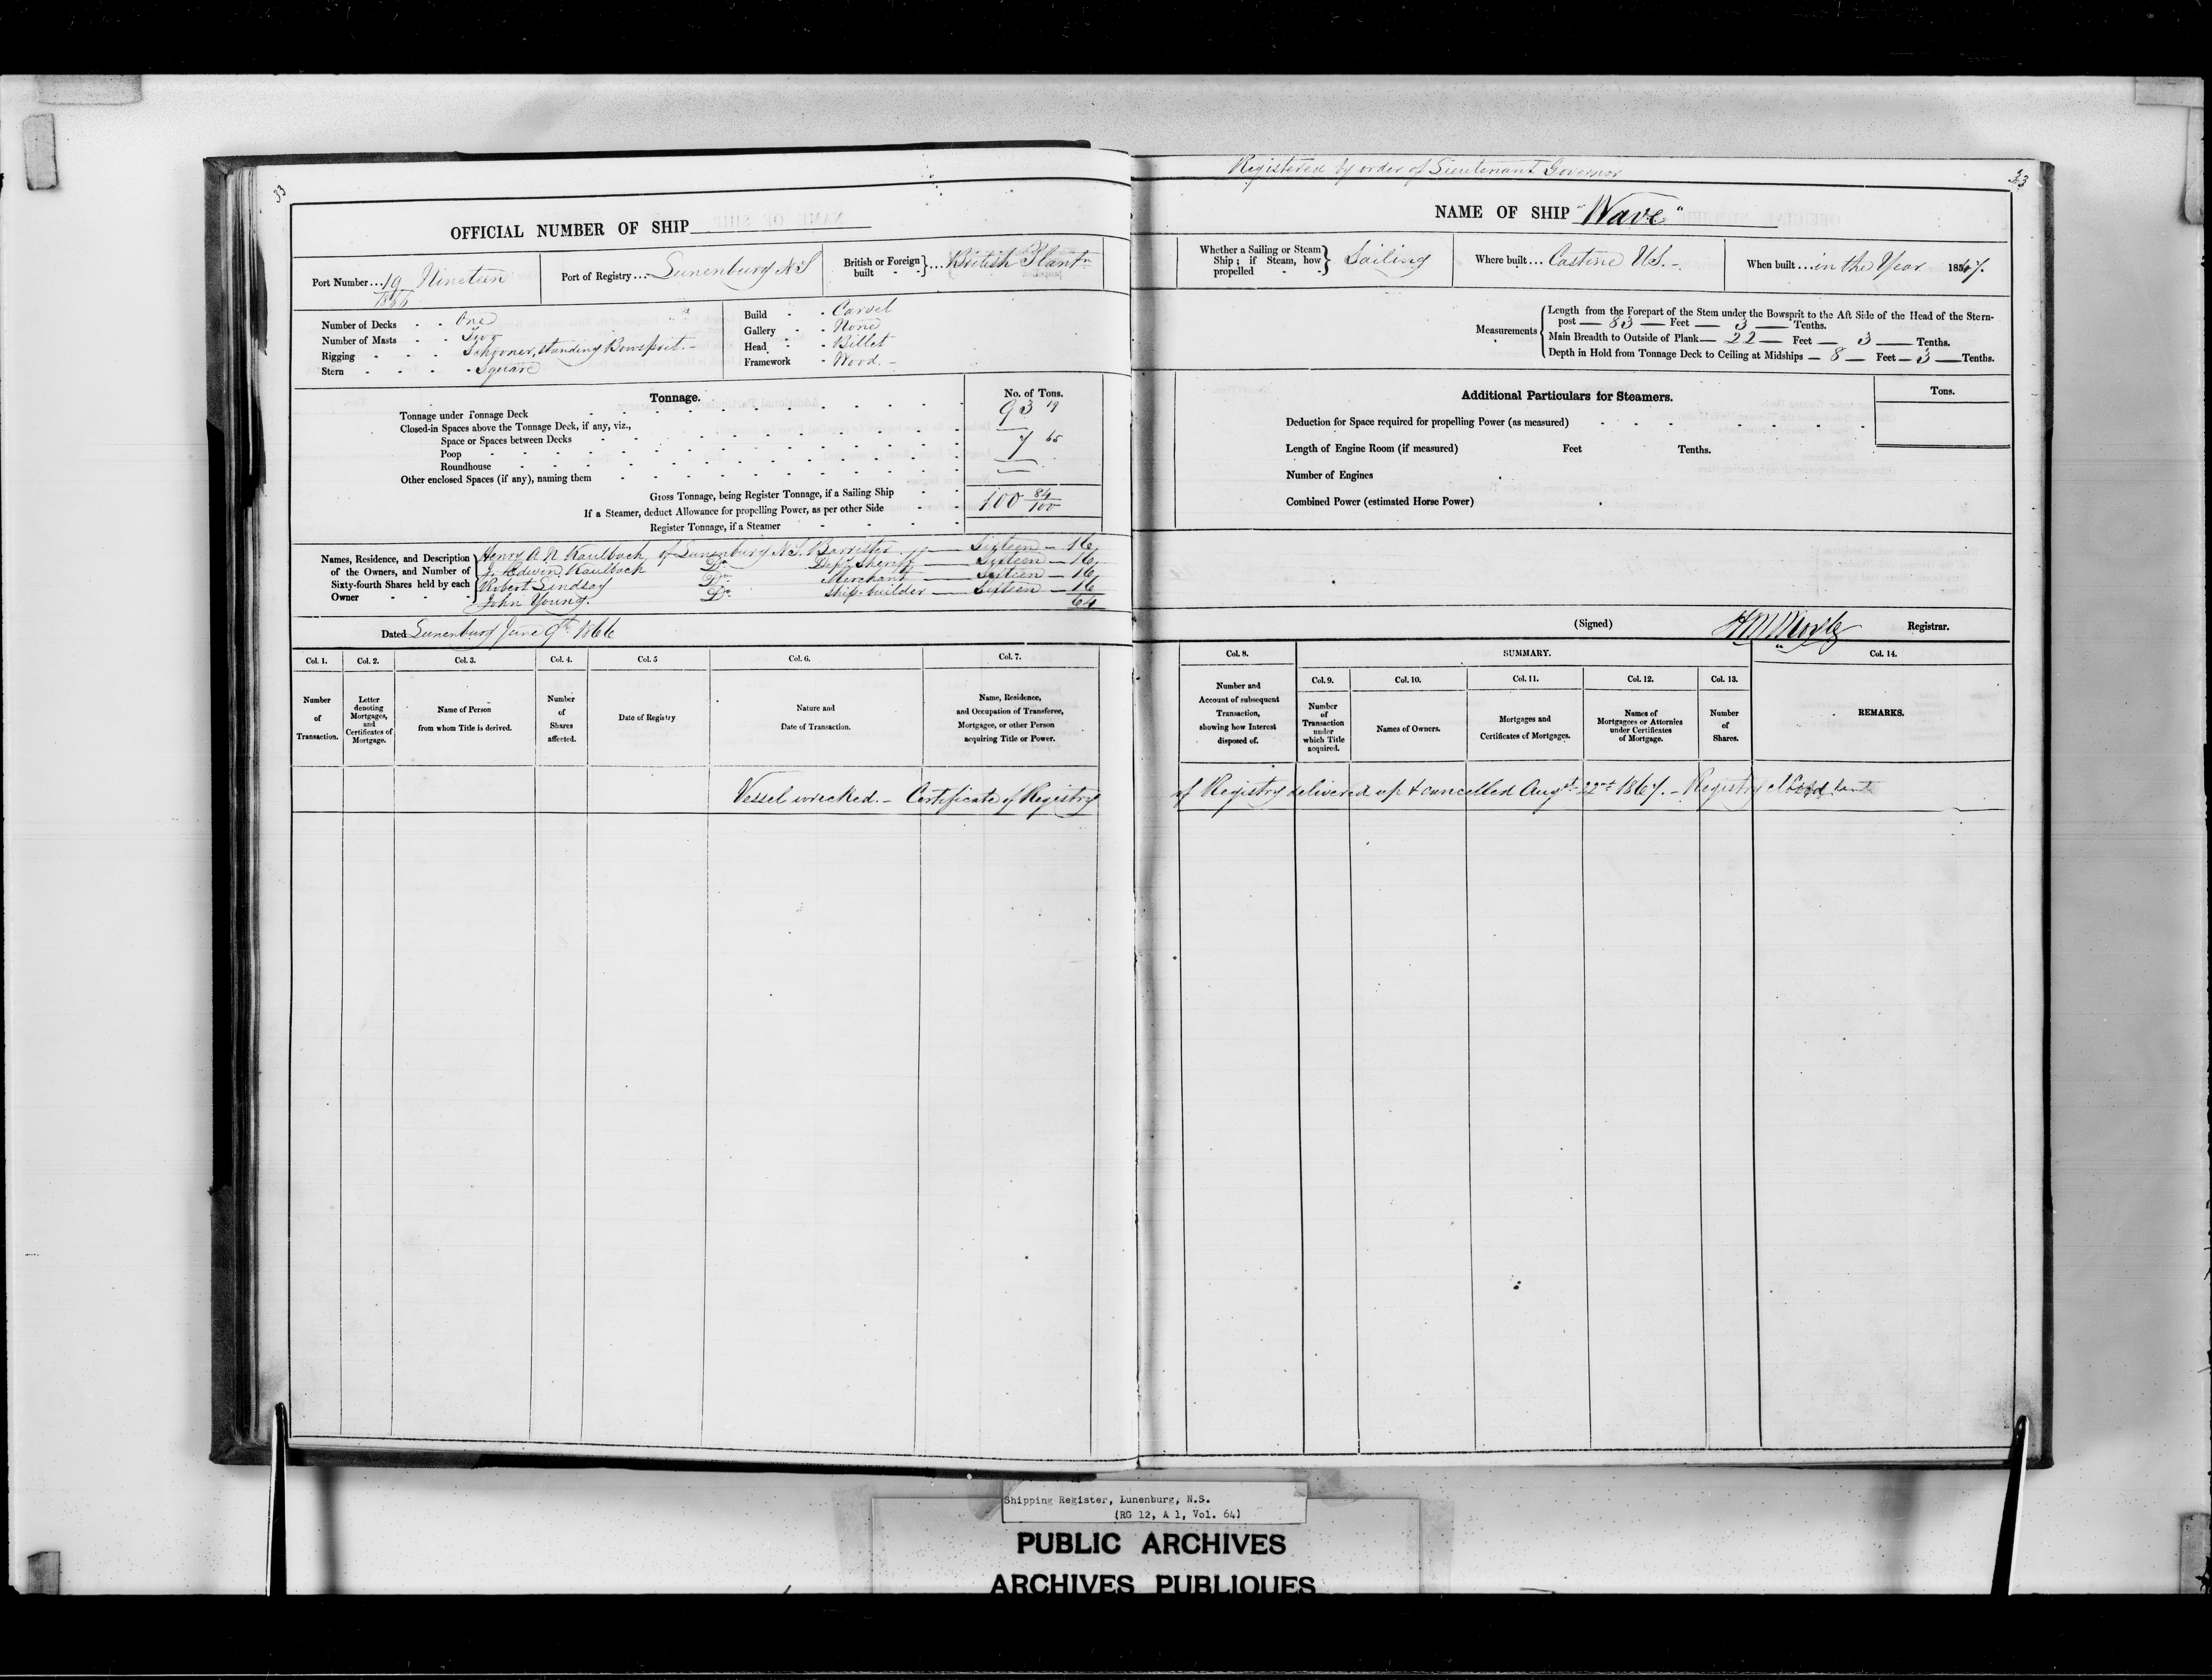 33
OFFICIAL NUMBER OF SHIP
Port Number...19 Nineteen
1866
Port of Registry... Lunenburg N S
British or Foreign built } ... British Plantn
Number of Decks - - One
Number of Masts - - Two
Rigging - - - Schooner, standing Bowsprit. -
Stern - - - - Square
Build - - Carvel
Gallery - - None
Head - - Billet
Framework - Wood. -
Tonnage.
No. of Tons.
Tonnage under Tonnage Deck 93 19
Closed-in Spaces above the Tonnage Deck, if any, viz.,
Space or Spaces between Decks
Poop 7 65
Roundhouse
Other enclosed Spaces (if any), naming them
Gross Tonnage, being Register Tonnage, if a Sailing Ship 100 84/100
If a Steamer, deduct Allowance for propelling Power, as per other Side
Register Tonnage, if a Steamer
Names, Residence, and Description of the Owners, and Number of Sixty-fourth Shares held by each Owner
Henry A N Kaulbach of Lunenburg N.S. Barrister — Sixteen — 16
J. Edwin Kaulbach Do Depy Sheriff — Sixteen — 16
Robert Lindsay Do Merchant — Sixteen — 16
John Young. Do Ship-builder — Sixteen — 16
64
Dated Lunenburg June 9th 1866
Col. 1. Col. 2. Col. 3. Col. 4. Col. 5 Col. 6. Col. 7.
Number of Transaction.
Letter denoting Mortgages, and Certificates of Mortgage.
Name of Person from whom Title is derived.
Number of Shares affected.
Date of Registry
Nature and Date of Transaction.
Name, Residence, and Occupation of Transferee, Mortgagee, or other Person acquiring Title or Power.
Vessel wrecked. - Certificate of Registry
Registered by order of Lieutenant Governor
33
NAME OF SHIP "Wave"
Whether a Sailing or Steam Ship; if Steam, how propelled } Sailing
Where built... Castine U.S. -
When built ... in the Year 1847.
Measurements
Length from the Forepart of the Stem under the Bowsprit to the Aft Side of the Head of the Stern-
post — 83 — Feet — 3 — Tenths.
Main Breadth to Outside of Plank — 22 — Feet — 3 — Tenths.
Depth in Hold from Tonnage Deck to Ceiling at Midships — 8 — Feet — 3 — Tenths.
Additional Particulars for Steamers.
Tons.
Deduction for Space required for propelling Power (as measured)
Length of Engine Room (if measured) Feet Tenths.
Number of Engines
Combined Power (estimated Horse Power)
(Signed) Registrar.
Col. 8. SUMMARY. Col. 14.
Col. 9. Col. 10. Col. 11. Col. 12. Col. 13.
Number and Account of subsequent Transaction, showing how Interest disposed of.
Number of Transaction under which Title acquired.
Names of Owners.
Mortgages and Certificates of Mortgages.
Names of Mortgagees or Attornies under Certificates of Mortgage.
Number of Shares.
REMARKS.
of Registry delivered up & cancelled Augst 22nd 1867. - Registry closed
Shipping Register, Lunenburg, N.S.
(RG 12, A 1, Vol. 64)
PUBLIC ARCHIVES
ARCHIVES PUBLIQUES